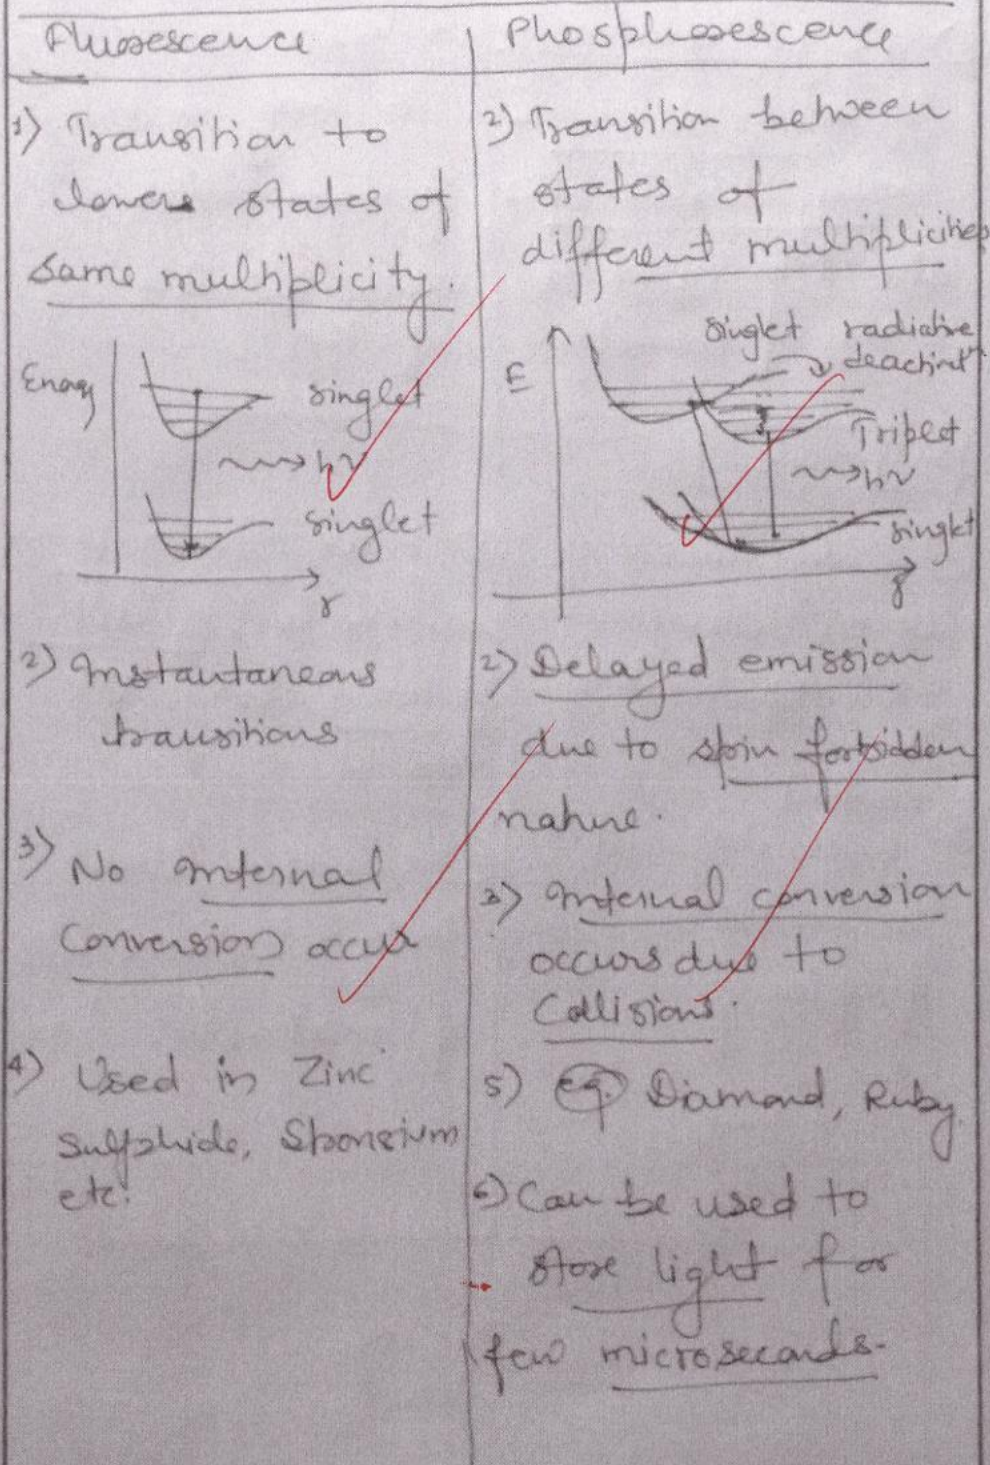 Fluorescence
1) Transition to
lower states of
same multiplicity.
Energy
singlet
hν
singlet
r
2) Instantaneous
transitions
3) No internal
conversion occur
4) Used in Zinc
Sulphide, Stronsium
etc.
Phosphorescence
2) Transition between
states of
different multiplicities
singlet radiative
E
Triplet
hν
singlet
2) Delayed emission
due to spin forbidden
nature.
3) Internal conversion
occurs due to
Collisions.
5) eg. Diamond, Ruby
6) Can be used to
store light for
few microseconds.